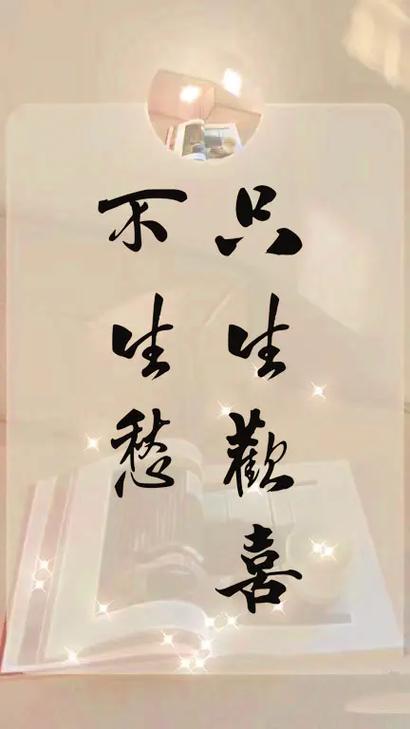 只生歡喜
不生愁